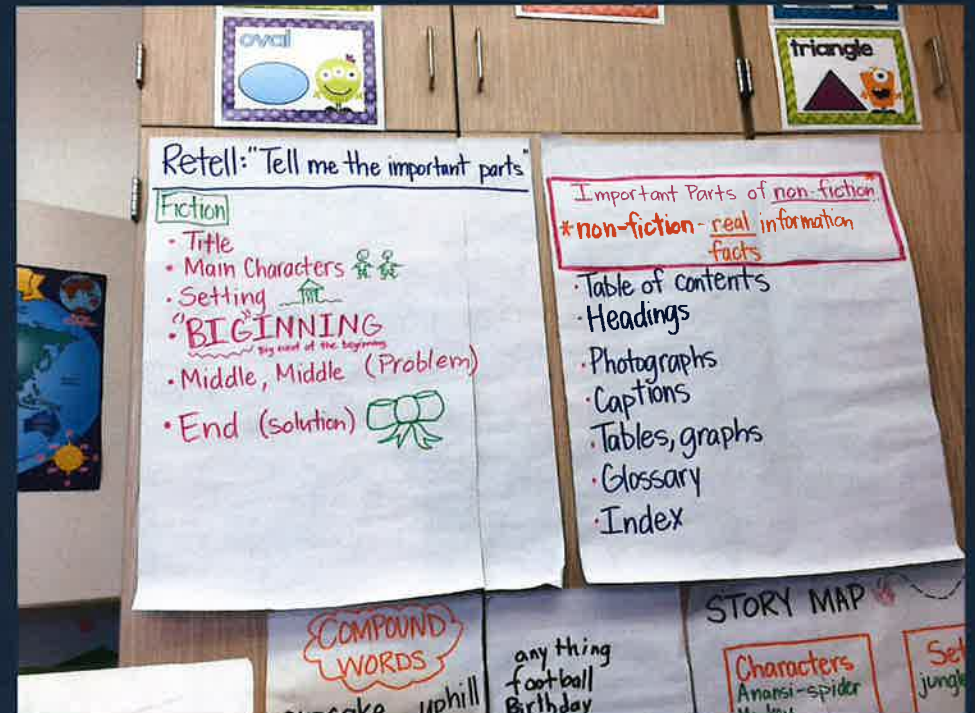 oval
triangle
Retell: "Tell me the important parts"
Fiction
· Title
· Main Characters
· Setting
· "BIG"INNING
Big event of the beginning
· Middle, Middle (Problem)
· End (solution)
Important Parts of non-fiction
*non-fiction - real information
facts
· Table of contents
· Headings
· Photographs
· Captions
· Tables, graphs
· Glossary
· Index
COMPOUND
WORDS
uphill
any thing
football
Birthday
STORY MAP
Characters
Anansi-spider
Set
jungle